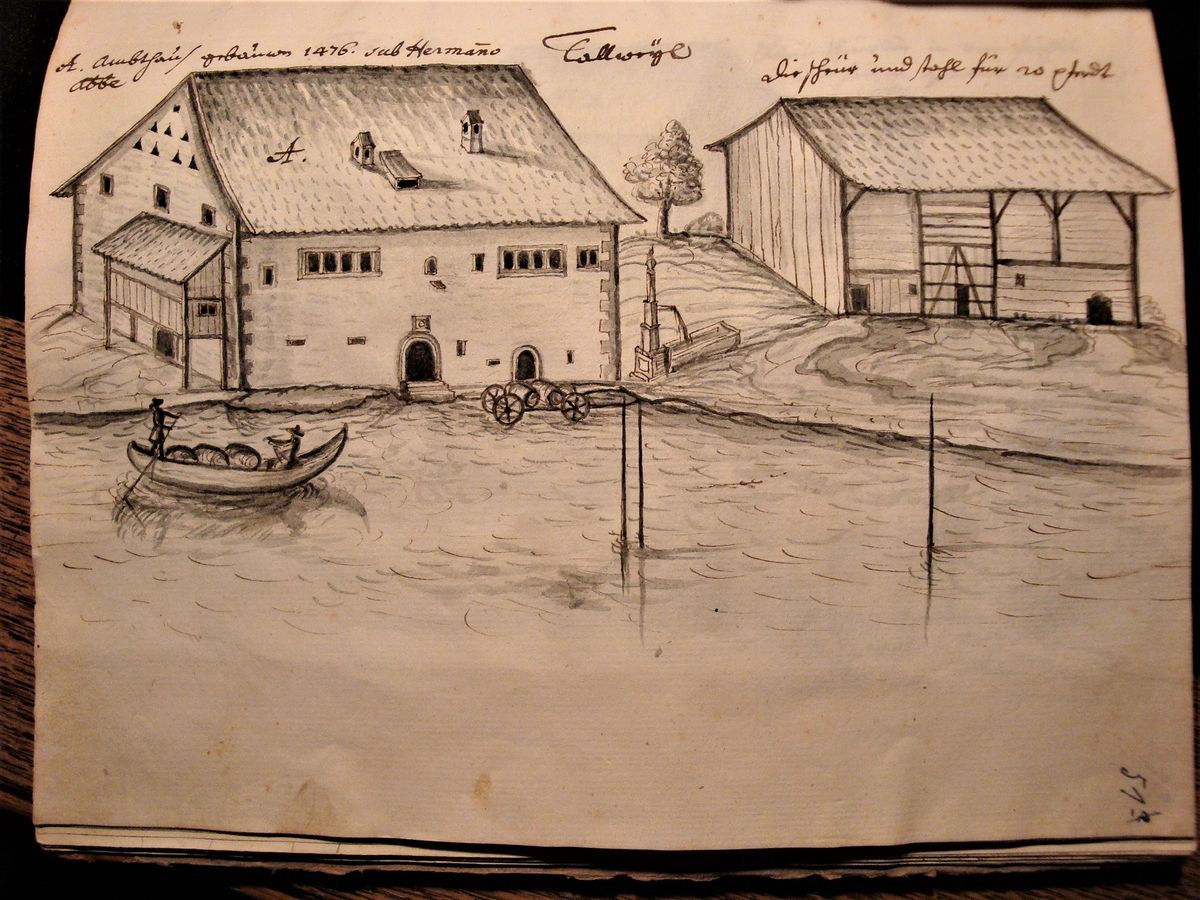 A. Ambthaus gebauwen 1476. sub Hermanno
abbe
Tallweÿl
die scheür und stahl für 20 pferdt
A.